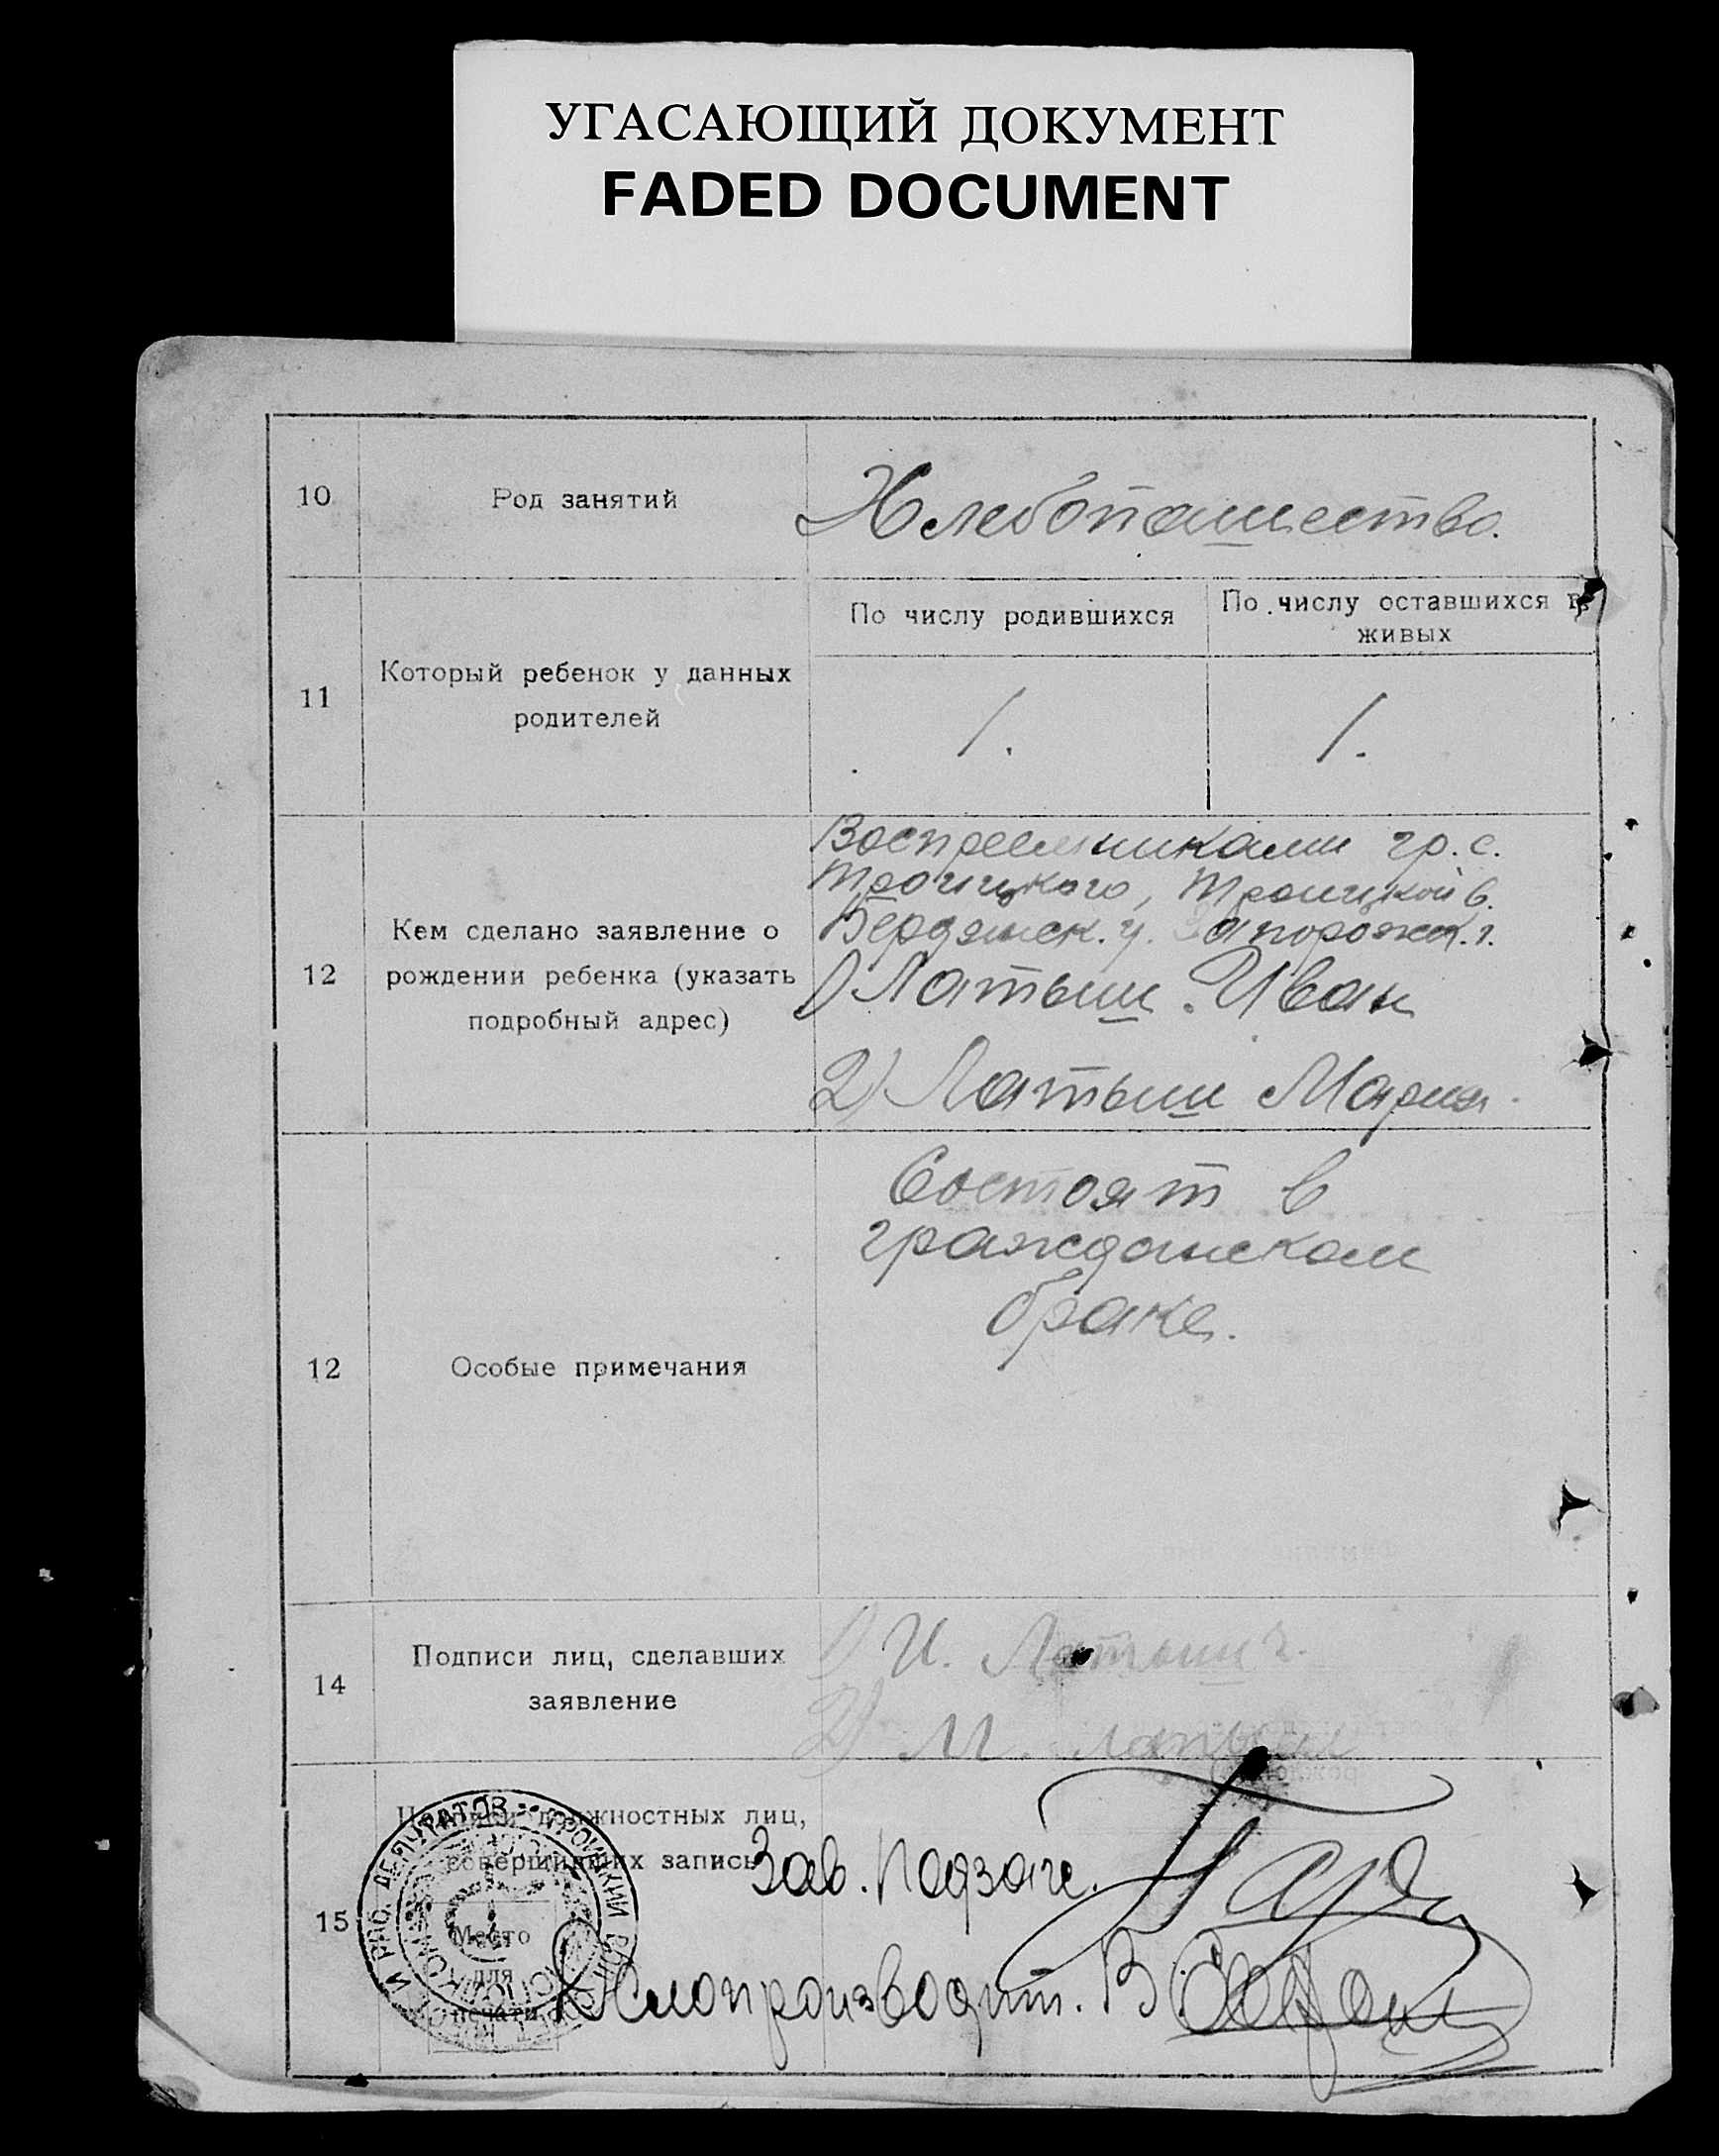 УГАСАЮЩИЙ ДОКУМЕНТ
FADED DOCUMENT
10
Род занятий
Хлебопашество.
11
Который ребенок у данных
родителей
По числу родившихся
По числу оставшихся в
живых
1.
1.
12
Кем сделано заявление о
рождении ребенка (указать
подробный адрес)
Восприемниками гр. с.
Троицкого, Троицкой в.
Бердянск. у. Запорожск. г.
1) Латыш Иван
2) Латыш Мария
12
Особые примечания
Состоят в
гражданском
браке.
14
Подписи лиц, сделавших
заявление
1) И. Латыш
2) М. Латыш
15
Подписи должностных лиц,
совершивших запись
Место
для
печати
Зав. Подзаг.
Делопроизводит. В
ДЕПУТАТОВ ТРОИЦКИЙ
ИСПОЛКОМ